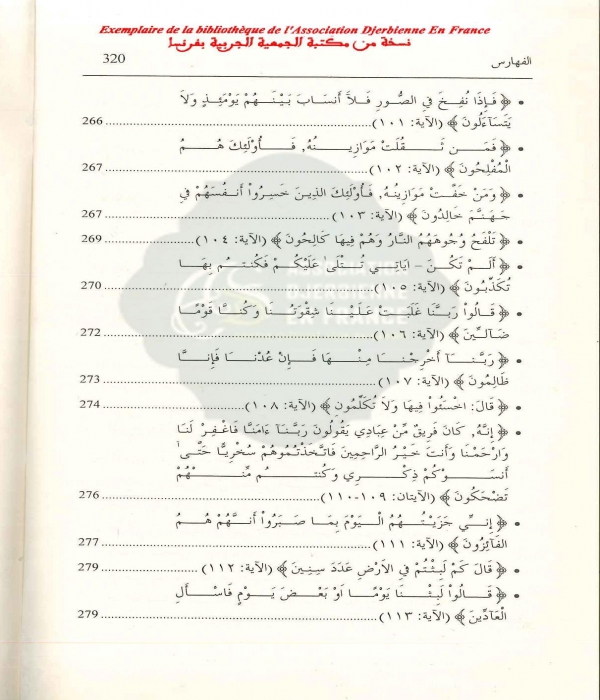 Exemplaire de la bibliothèque de l'Association Djerbienne En France
نسخة من مكتبة الجمعية الجربية بفرنسا
الفهارس 320
• ﴿ فَإِذَا نُفِخَ فِي الصُّورِ فَلَآ أَنسَابَ بَيْنَهُمْ يَوْمَئِذٍ وَلَا
يَتَسَآءَلُونَ ﴾ (الآية: ١٠١) ... 266
• ﴿ فَمَن ثَقُلَتْ مَوَازِينُهُ, فَأُوْلَئِكَ هُمُ
الْمُفْلِحُونَ ﴾ (الآية: ١٠٢) ... 267
• ﴿ وَمَنْ خَفَّتْ مَوَازِينُهُ, فَأُوْلَئِكَ الذِينَ خَسِرُواْ أَنفُسَهُمْ فِي
جَهَنَّمَ خَالِدُونَ ﴾ (الآية: ١٠٣) ... 267
• ﴿ تَلْفَحُ وُجُوهَهُمُ النَّارُ وَهُمْ فِيهَا كَالِحُونَ ﴾ (الآية: ١٠٤) ... 269
• ﴿ أَلَمْ تَكُنَ - ايَاتِي تُتْلَى عَلَيْكُمْ فَكُنتُم بِهَا
تُكَذِّبُونَ ﴾ (الآية: ١٠٥) ... 270
• ﴿ قَالُواْ رَبَّنَا غَلَبَتْ عَلَيْنَا شِقْوَتُنَا وَكُنَّا قَوْمًا
ضَآلِّينَ ﴾ (الآية: ١٠٦) ... 272
• ﴿ رَبَّنَآ أَخْرِجْنَا مِنْهَا فَإِنْ عُدْنَا فَإِنَّا
ظَالِمُونَ ﴾ (الآية: ١٠٧) ... 273
• ﴿ قَالَ: اخْسَئُواْ فِيهَا وَلَا تُكَلِّمُونِ ﴾ (الآية: ١٠٨) ... 274
• ﴿ إِنَّهُ, كَانَ فَرِيقٌ مِّنْ عِبَادِي يَقُولُونَ رَبَّنَآ ءَامَنَّا فَاغْفِرْ لَنَا
وَارْحَمْنَا وَأَنتَ خَيْرُ الرَّاحِمِينَ فَاتَّخَذْتُمُوهُمْ سُخْرِيًّا حَتَّىآ
أَنسَوْكُمْ ذِكْرِي وَكُنتُم مِّنْهُمْ
تَضْحَكُونَ ﴾ (الآيتان: ١٠٩-١١٠) ... 276
• ﴿ إِنِّي جَزَيْتُهُمُ الْيَوْمَ بِمَا صَبَرُواْ أَنَّهُمْ هُمُ
الْفَآئِزُونَ ﴾ (الآية: ١١١) ... 277
• ﴿ قَالَ كَمْ لَبِثْتُمْ فِي الاَرْضِ عَدَدَ سِنِينَ ﴾ (الآية: ١١٢) ... 279
• ﴿ قَالُواْ لَبِثْنَا يَوْمًا اَوْ بَعْضَ يَوْمٍ فَاسْأَلِ
الْعَآدِّينَ ﴾ (الآية: ١١٣) ... 279
ASSOCIATION
DJERBIENNE
EN FRANCE